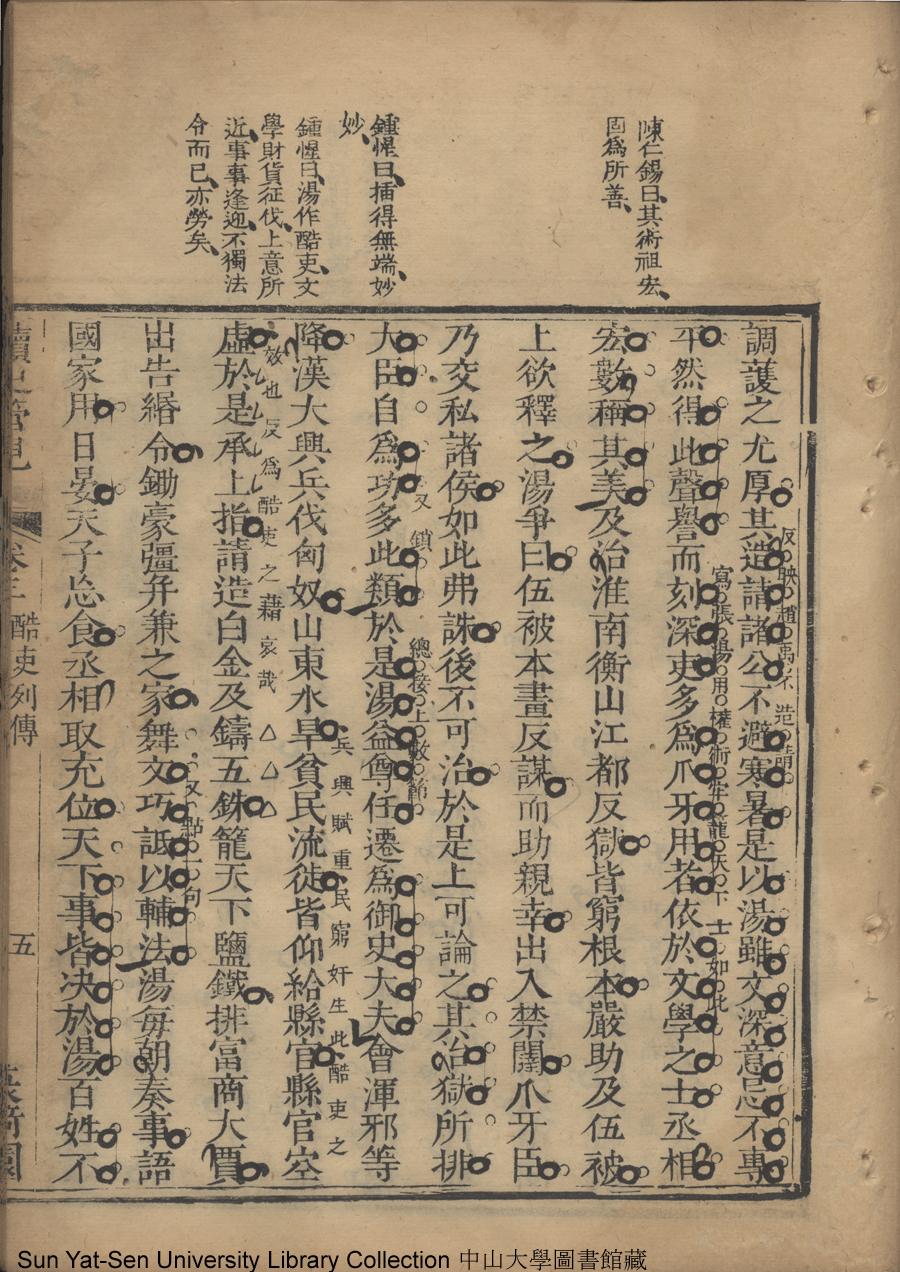 陳仁錫曰其術祖宏
固為所善
鍾惺曰插得無端妙
妙
鍾惺曰湯作酷吏文
學財貨征伐上意所
近事事逢迎不獨法
令而已亦勞矣
調護之尤厚其造請諸公不避寒暑是以湯雖文深意忌不專
反映趙禹不造請
平然得此聲譽而刻深吏多為爪牙用者依於文學之士丞相
寫張湯用權術牢籠天下士如此
宏數稱其美及治淮南衡山江都反獄皆窮根本嚴助及伍被
上欲釋之湯爭曰伍被本畫反謀而助親幸出入禁闥爪牙臣
乃交私諸侯如此弗誅後不可治於是上可論之其治獄所排
大臣自為功多此類於是湯益尊任遷為御史大夫會渾邪等
又鎖
總接上數節
降漢大興兵伐匈奴山東水旱貧民流徙皆仰給縣官縣官空
兵興賦重民窮奸生此酷吏之
效也反為酷吏之藉哀哉
虛於是承上指請造白金及鑄五銖籠天下鹽鐵排富商大賈
出告緡令鋤豪彊弁兼之家舞文巧詆以輔法湯每朝奏事語
又點一句
國家用日晏天子忘食丞相取充位天下事皆決於湯百姓不
讀史管見
卷三 酷吏列傳
五
Sun Yat-Sen University Library Collection 中山大學圖書館藏